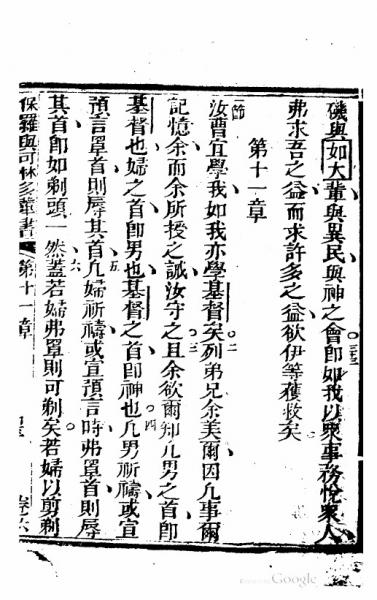 磯與如大輩與異民與神之會卽如我以眾事務悅眾人
弗求吾之益而求許多之益欲伊等獲救矣
第十一章
一節
汝曹宜學我如我亦學基督矣列弟兄余美爾因凡事爾
二
記憶余而余所授之誡汝守之且余欲爾知凡男之首卽
三
基督也婦之首卽男也基督之首卽神也凡男祈禱或宣
四
預言罩首則辱其首凡婦祈禱或宣預言時弗罩首則辱
五
其首卽如剃頭一然蓋若婦弗罩則可剃矣若婦以剪剃
六
保羅與可林多輩書
第十一章
Google